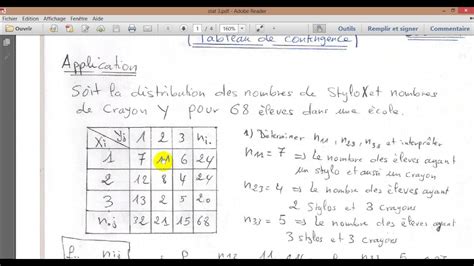 stat 3.pdf - Adobe Reader
Fichier Edition Affichage Fenêtre Aide
Ouvrir
1 / 4
160%
Outils
Remplir et signer
Commentaire
(Tableau de contingence)
Application
Soit la distribution des nombres de Stylo X et nombres
de Crayon Y pour 68 élèves dans une école.
Xi Yj 1 2 3 ni.
1 7 11 6 24
2 12 8 4 24
3 13 2 5 20
n.j 32 21 15 68
1) Déterminer n11, n23, n33 et interpréter
n11 = 7 => le nombre des élèves ayant
un stylo et aussi un crayon
n23 = 4 => le nombre des élèves ayant
2 Stylos et 3 crayons
n33 = 5 => le nombre des élèves ayant
3 styles et 3 crayons